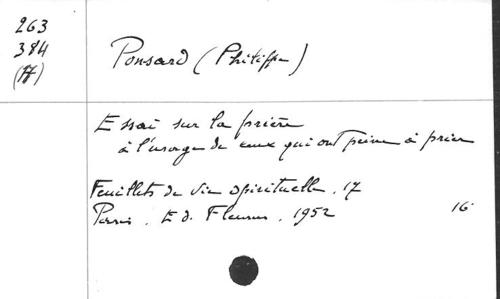 263
384
(17)
Ponsard (Philippe)
Essai sur la prière
à l'usage de ceux qui ont peine à prier
Feuillets de vie spirituelle, 17
Paris, Ed. Fleurus, 1952 16